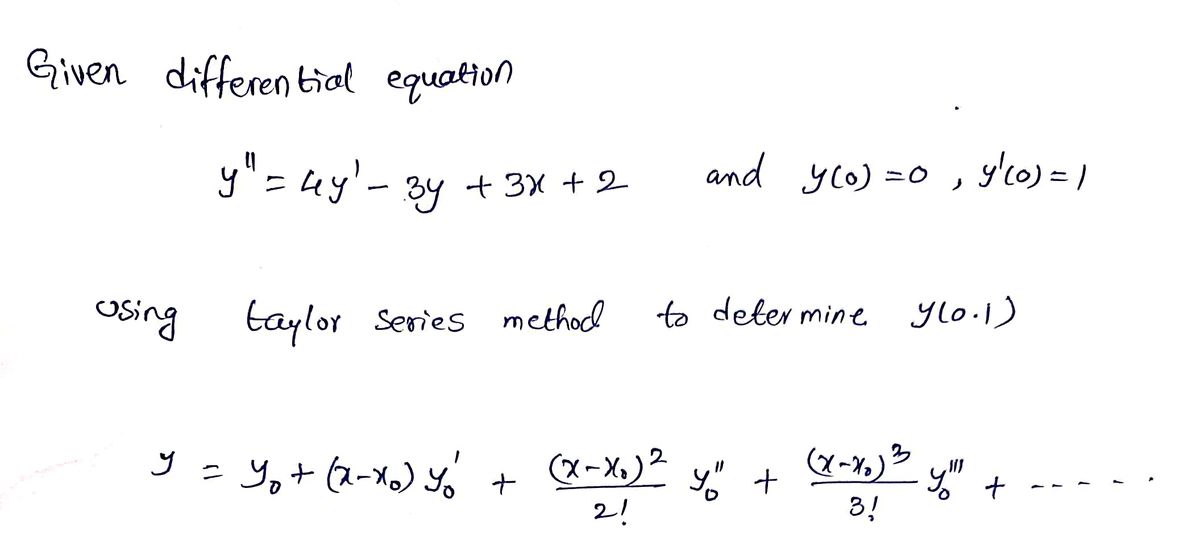 Given differential equation
y'' = 4y' - 3y + 3x + 2 and y(0) = 0 , y'(0) = 1
using taylor series method to determine y(0.1)
y = y₀ + (x-x₀) y₀' + (x-x₀)²/2! y₀'' + (x-x₀)³/3! y₀''' + -----.